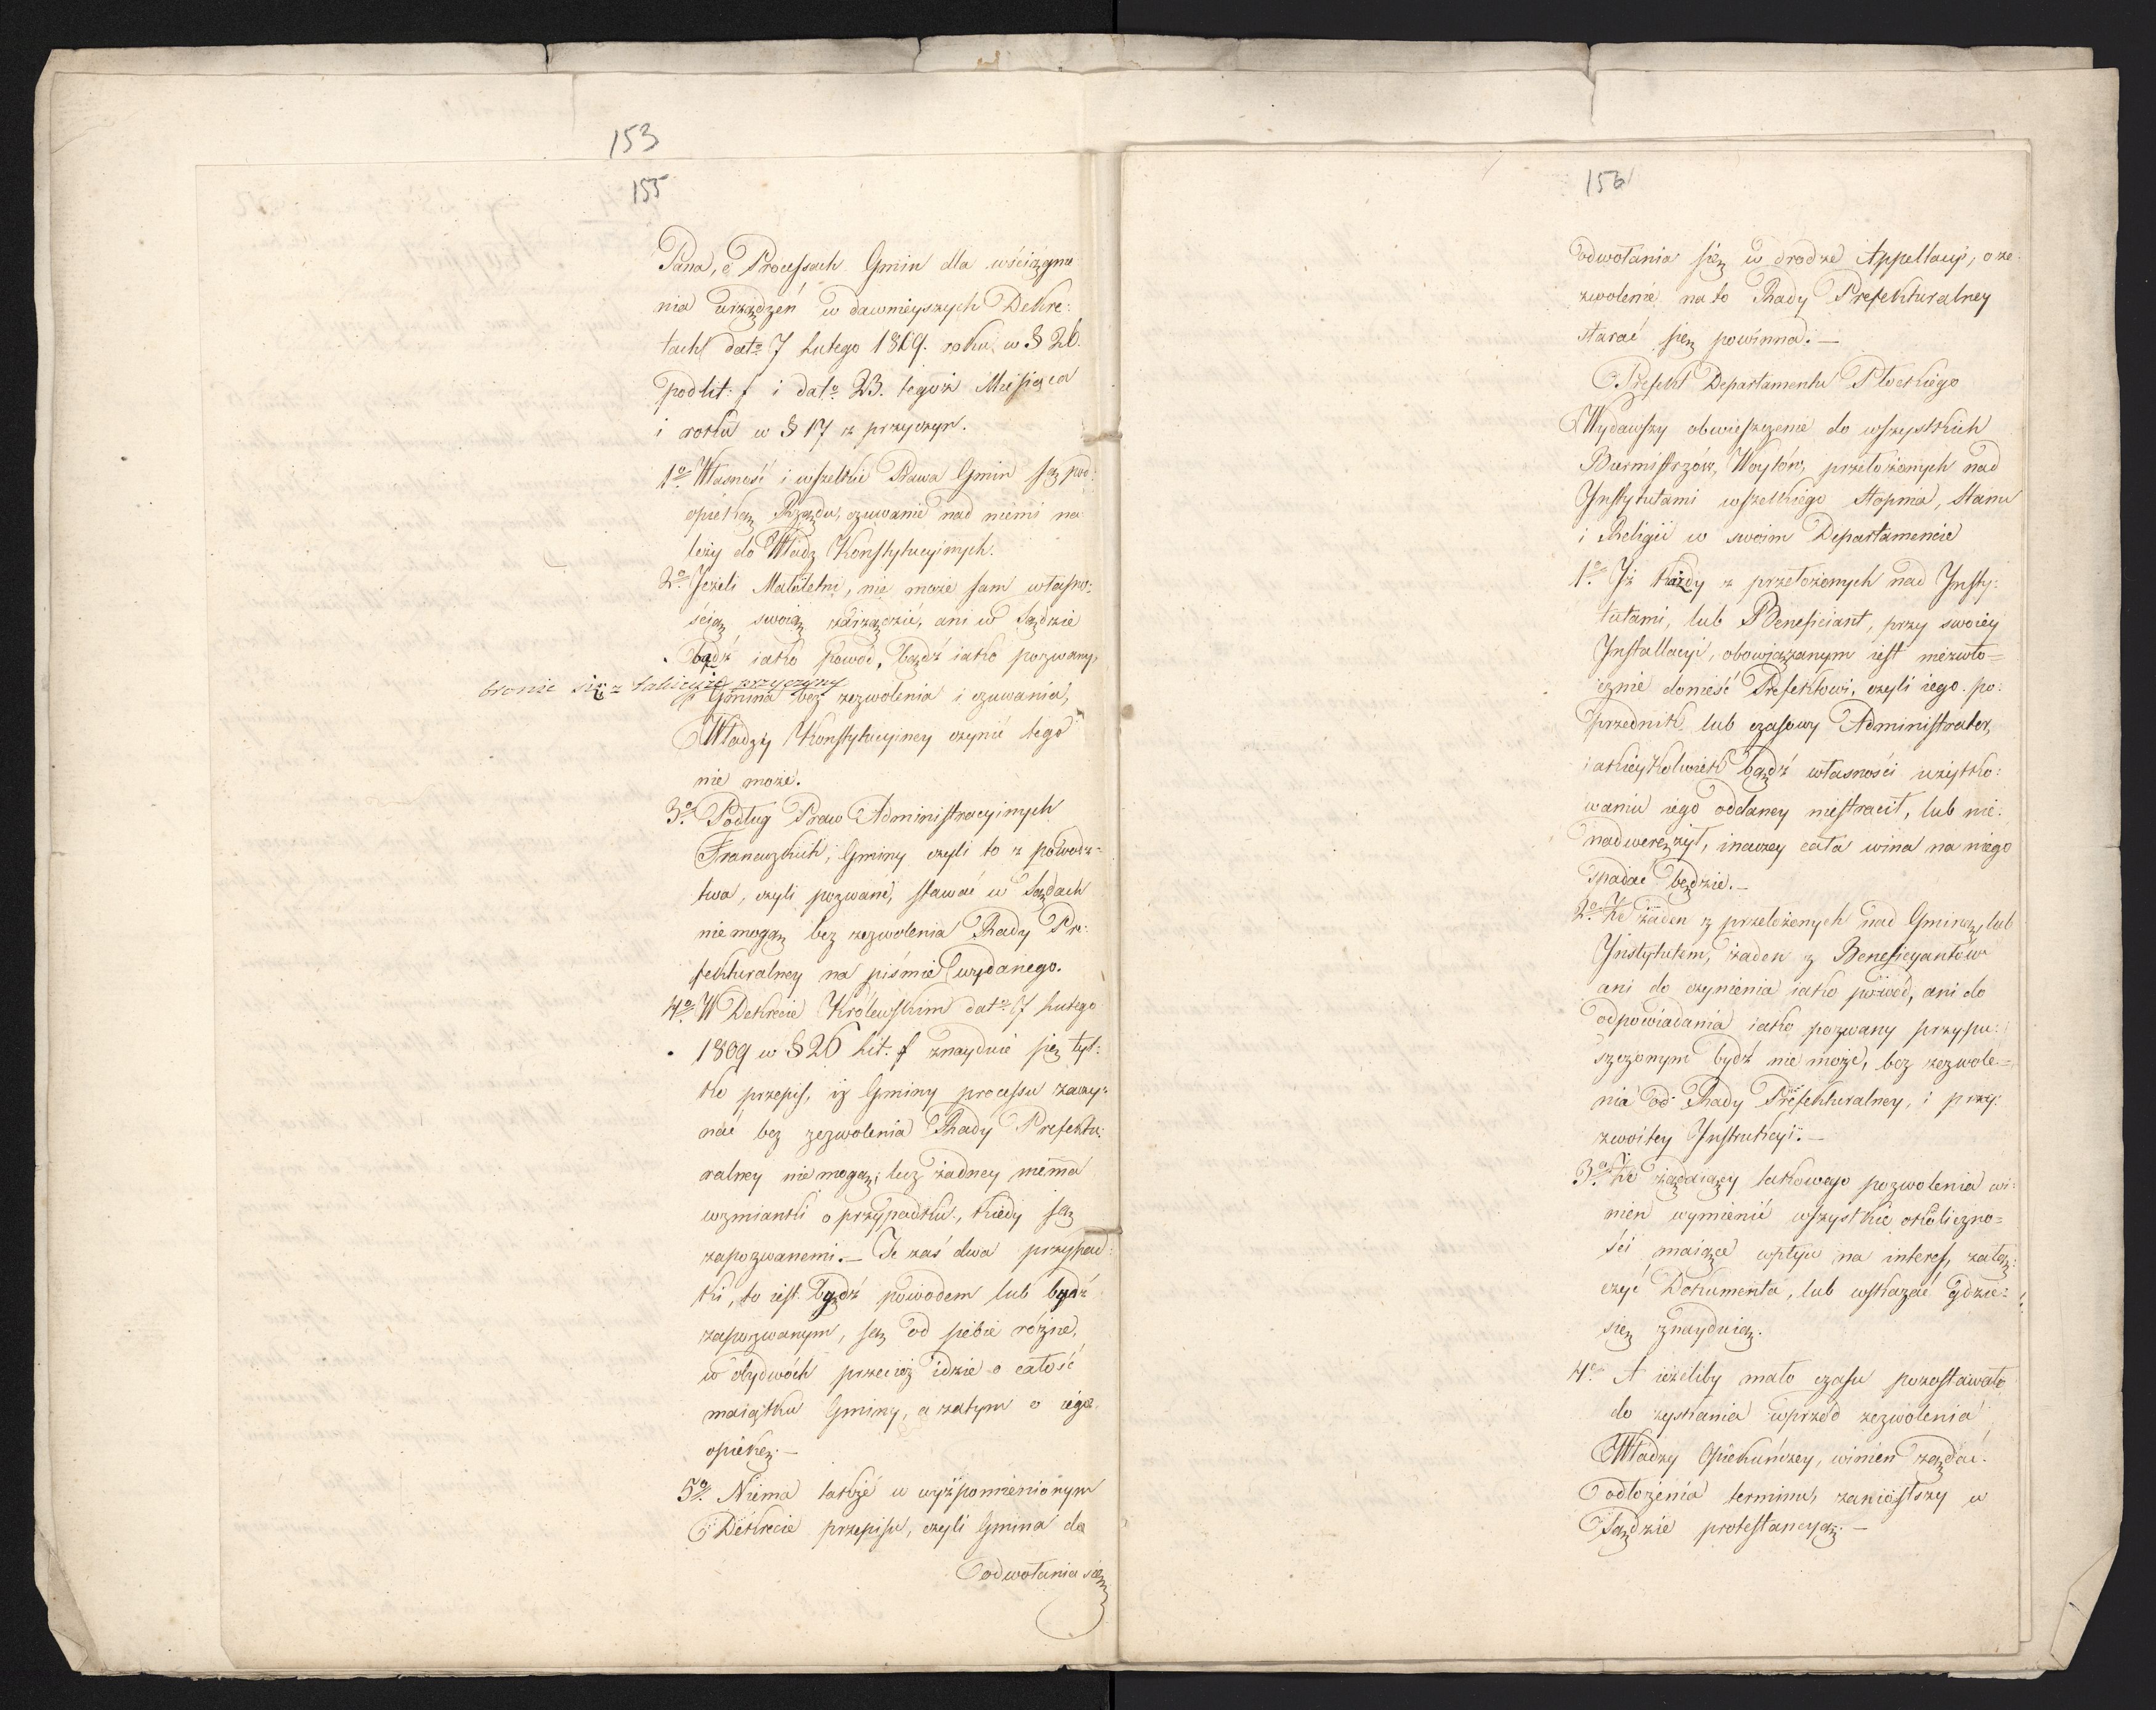 153
155
Pana, o Processach Gmin dla wściągnie
nia urządzeń w dawnieyszych Dekre:
tach dato 7 Lutego 1809. roku w § 26.
pod Lit: f i dato 23. tegoż Miesiąca
i roku w § 17 z przyczyn.
1o. Własność i wszelkie Prawa Gmin są pod
opieką Rządu, czuwanie nad niemi na
leży do Władz Konstytucyinych.
2o. Jeżeli Małoletni, nie może sam własno:
ścią swoią zarządzić, ani w Sądzie
bądź iako powód, bądź iako pozwany,
bronić się z takieyże przyczyny
Gmina bez zezwolenia i czuwania,
Władzy Konstytucyiney czynić tego
nie może.
3o. Podług Praw Administracyinych
Francuzkich, Gminy czyli to z powodz-
twa, czyli pozwane, stawać w Sądach
nie mogą bez zezwolenia Rady Pre:
fekturalney na piśmie wydanego.
4o. W Dekrecie Królewskim dato 7 Lutego
1809 w § 26 Lit. f znayduie się tyl:
ko przepis, iż Gminy processu zaczy-
nać bez zezwolenia Rady Prefektu:
ralney nie mogą; lecz żadney niema
wzmianki o przypadku, kiedy są
zapozwanemi. — Te zaś dwa przypad:
ki, to iest. bydź powodem lub bydź
zapozwanym, są od siebie różne,
w obydwóch przecież idzie o całość
maiątku Gminy, a zatym o iego
opiekę. —
5o. Niema także w wyżpomienionym
Dekrecie przepisu, czyli Gmina do
Odwołania się
156
odwołania się w drodze Appellacyi, o ze
zwolenie na to Rady Prefekturalney
starać się powinna. —
Prefekt Departamentu Płockiego
Wydawszy obwieszczenie do wszystkich
Burmistrzów, Woytów, przełożonych nad
Instytutami wszelkiego stopnia, stanu
i Religii w swoim Departamencie
1o. Iż każdy z przełożonych nad Insty:
tutami, lub Beneficiant, przy swoiey
Installacyi, obowiązanym iest niezwło=
cznie donieść Prefektowi, czyli iego po:
przednik lub czasowy Administrator,
iakieykolwiek bądź własności użytko:
waniu iego oddaney niestracił, lub nie:
nadwerężył, inaczey cała wina na niego
spadać będzie. —
2o. Że żaden z przełożonych nad Gminą, lub
Instytutem, żaden z Beneficyantów
ani do czynienia iako powód, ani do
odpowiadania iako pozwany przypu:
szczonym bydź nie może, bez zezwole=
nia od Rady Prefekturalney, i przy:
zwoitey Instrukcyi. —
3o. Że żądaiący takowego pozwolenia wi:
nien wymienić wszystkie okoliczno=
ści maiące wpływ na interes, załą:
czyć Dokumenta, lub wskazać gdzie:
się znayduią.
4o. A ieżeliby mało czasu pozostawało
do zyskania wprzód zezwolenia
Władzy Opiekuńczey, winien żądać
odłożenia terminu, zaniósłszy w
Sądzie protestancyą. —